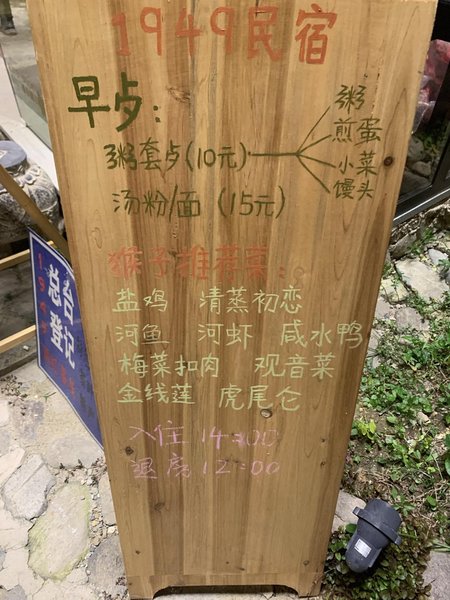 1949民宿
早歺：
粥套歺(10元)
粥
煎蛋
小菜
馒头
汤粉/面 (15元)
猴子推荐菜：
盐鸡 清蒸初恋
河鱼 河虾 咸水鸭
梅菜扣肉 观音菜
金线莲 虎尾仑
入住 14:00
退房 12:00
总台
登记